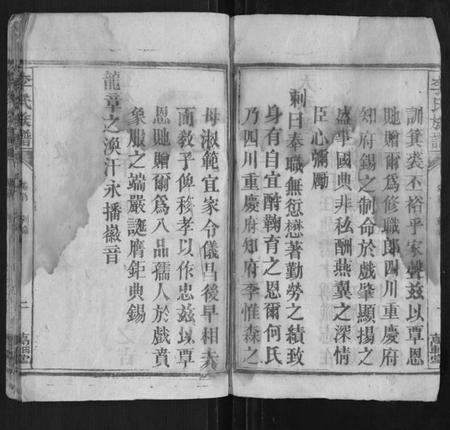 訓箕裘不裕乎家聲茲以覃恩
貤贈爾為修職郎四川重慶府
知府錫之制命於戲肇顯揚之
盛事國典非私酬燕翼之深情
臣心彌勵
制曰奉職無愆懋著勤勞之績致
身有自宜酧鞠育之恩爾何氏
乃四川重慶府知府李惟森之
母淑範宜家令儀昌後早相夫
而教子俾移孝以作忠茲以覃
恩貤贈爾為八品孺人於戲賁
象服之端嚴誕膺鉅典錫
龍章之渙汗永播徽音
李氏族譜
二
李氏族譜